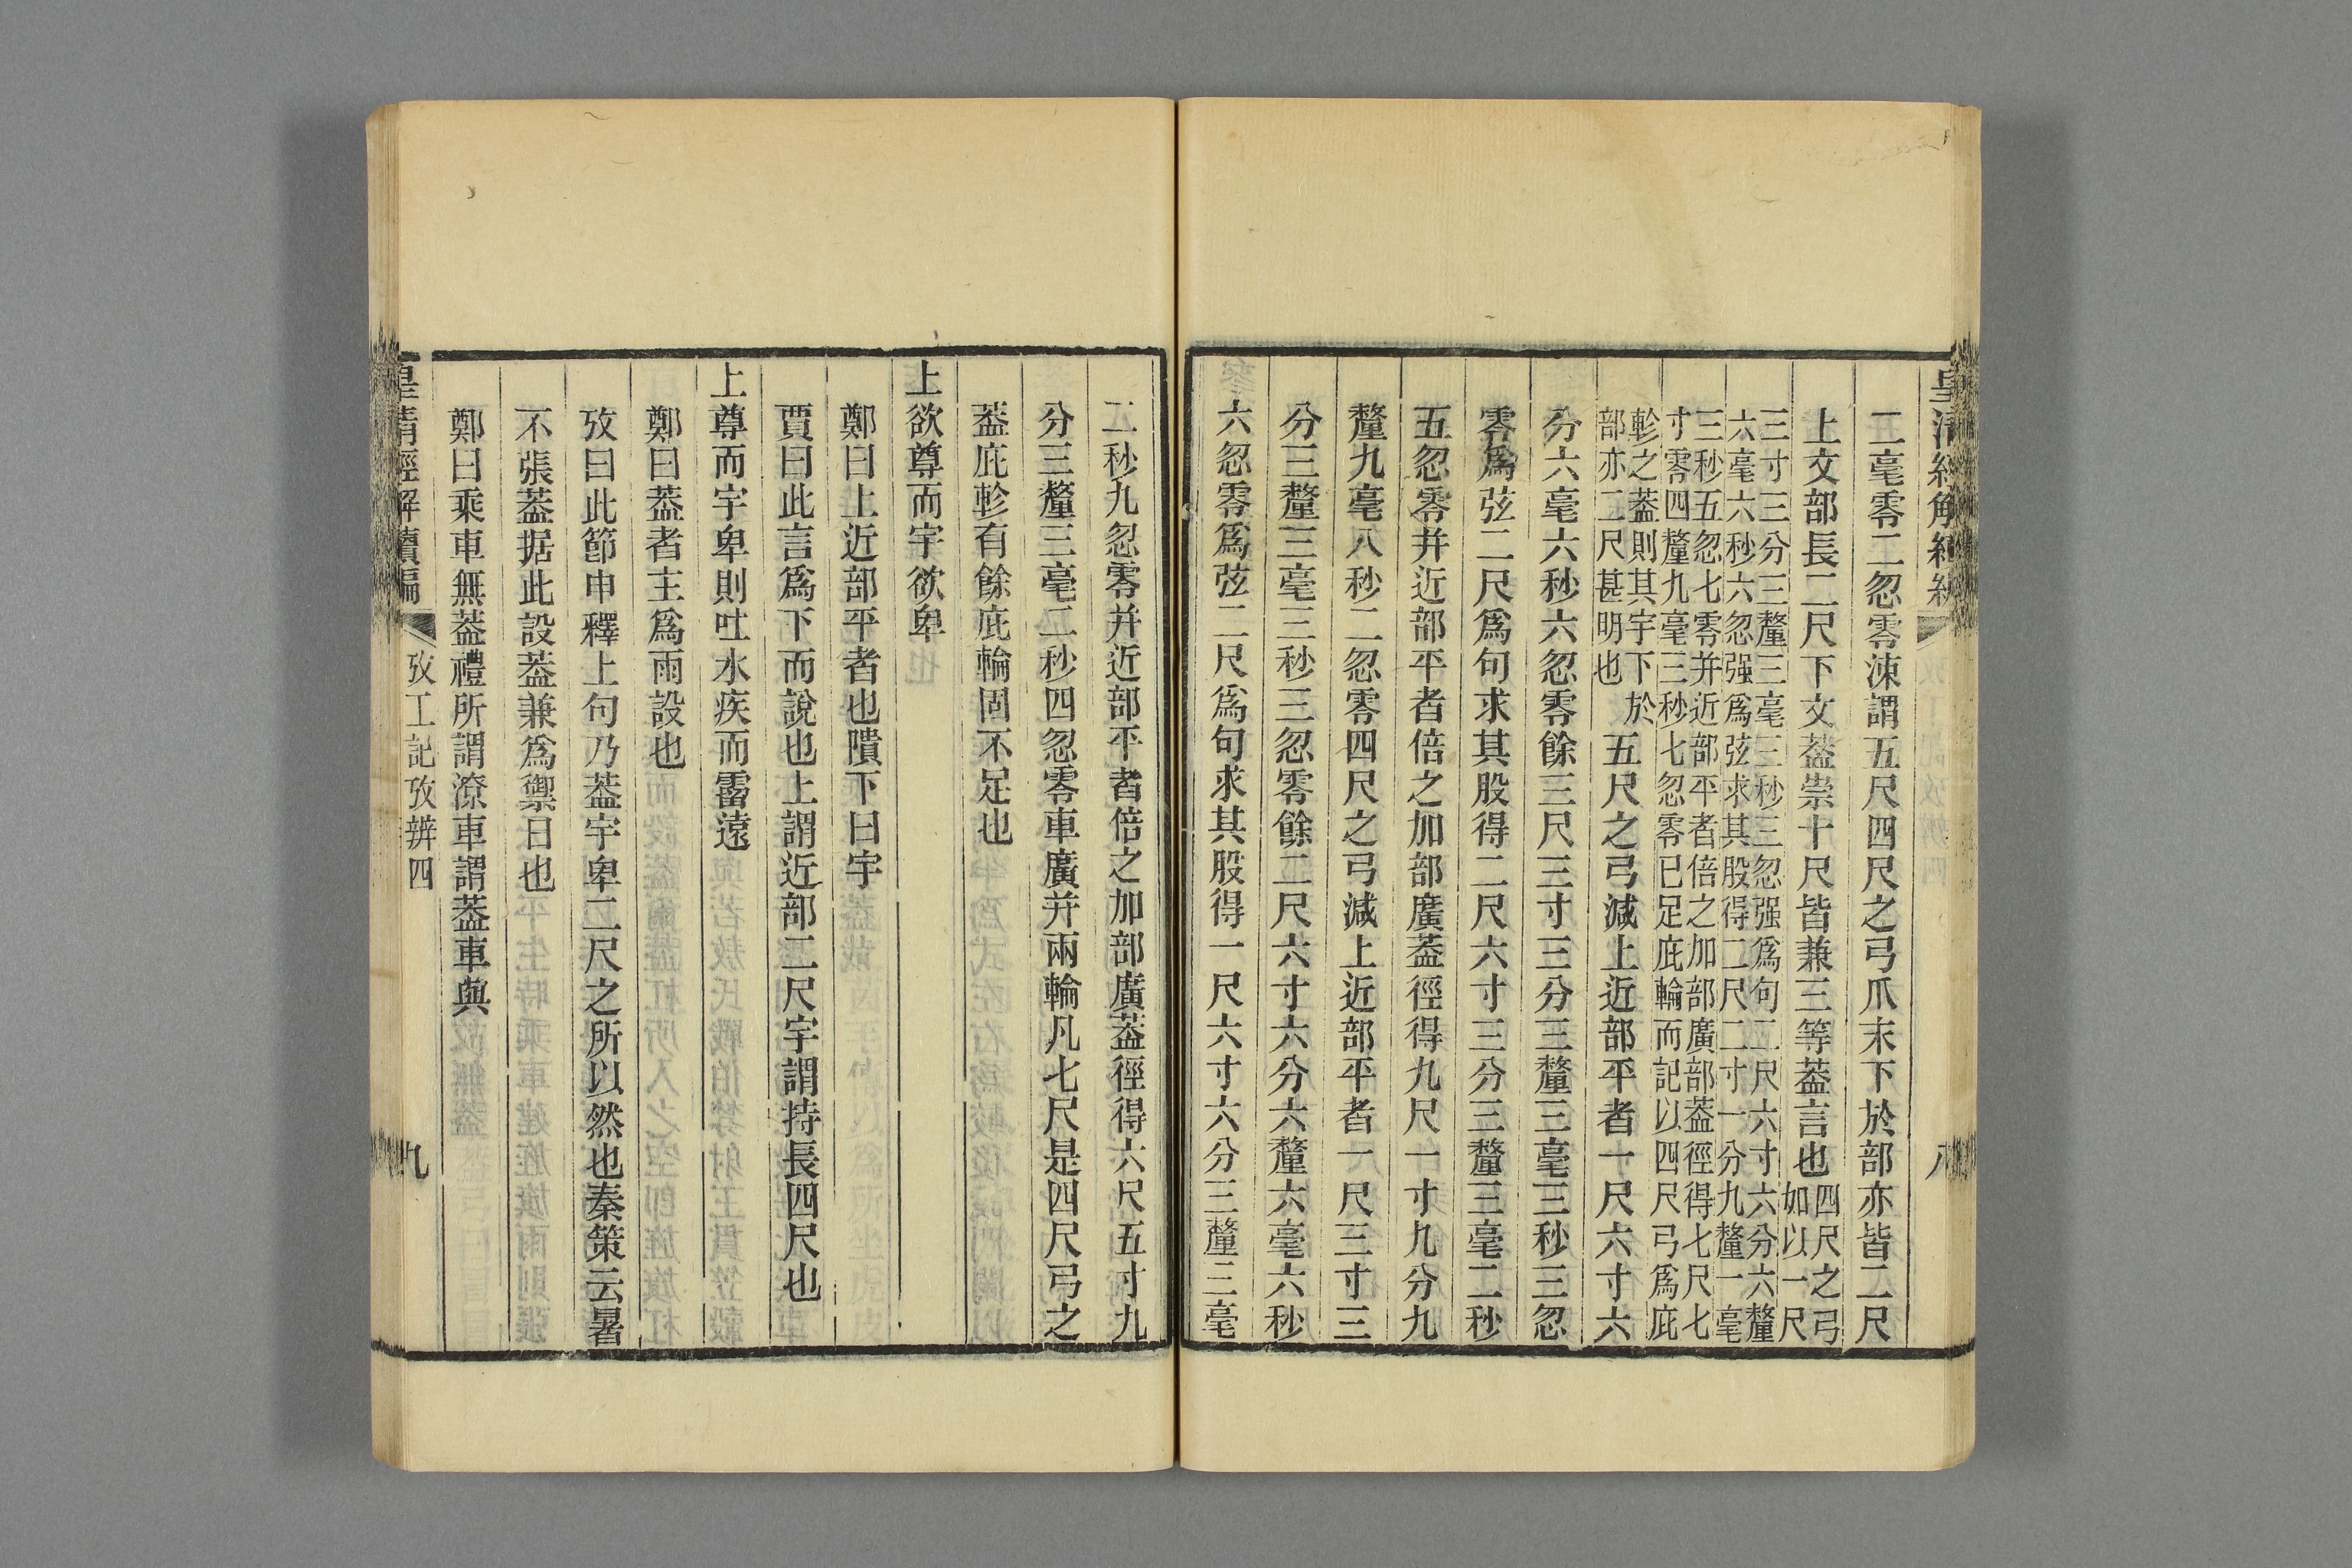 皇清經解續編
八
二毫零二忽零涑謂五尺四尺之弓爪末下於部亦皆二尺
上文部長二尺下文葢崇十尺皆兼三等葢言也四尺之弓
如以一尺
三寸三分三釐三毫三秒三忽强爲句二尺六寸六分六釐
六毫六秒六忽强爲弦求其股得二尺二寸一分九釐一毫
三秒五忽七零并近部平者倍之加部廣部葢徑得七尺七
寸零四釐九毫三秒七忽零已足庇輪而記以四尺弓爲庇
軫之葢則其宇下於
部亦二尺甚明也
五尺之弓減上近部平者一尺六寸六
分六毫六秒六忽零餘三尺三寸三分三釐三毫三秒三忽
零爲弦二尺爲句求其股得二尺六寸三分三釐三毫二秒
五忽零并近部平者倍之加部廣葢徑得九尺一寸九分九
釐九毫八秒二忽零四尺之弓減上近部平者一尺三寸三
分三釐三毫三秒三忽零餘二尺六寸六分六釐六毫六秒
六忽零爲弦二尺爲句求其股得一尺六寸六分三釐三毫
二秒九忽零并近部平者倍之加部廣葢徑得六尺五寸九
分三釐三毫二秒四忽零車廣并兩輪凡七尺是四尺弓之
葢庇軫有餘庇輪固不足也
上欲尊而宇欲卑
鄭曰上近部平者也隤下曰宇
賈曰此言爲下而說也上謂近部二尺宇謂持長四尺也
上尊而宇卑則吐水疾而霤遠
鄭曰葢者主爲雨設也
攷曰此節申釋上句乃葢宇卑二尺之所以然也秦策云暑
不張葢据此設葢兼爲禦日也
鄭曰乘車無葢禮所謂潦車謂葢車與
皇清經解續編
攷工記攷辨四
九